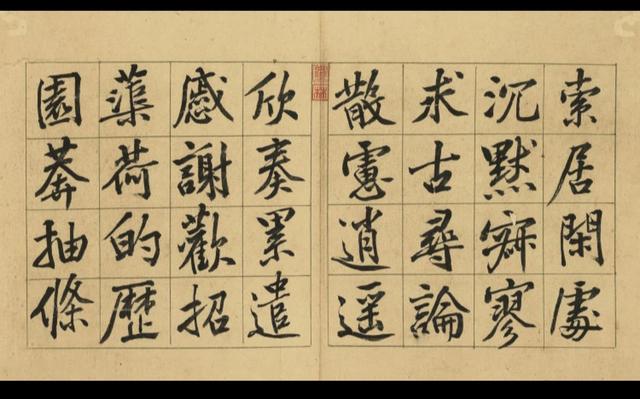 索居閑處
沉默寂寥
求古尋論
散慮逍遥
欣奏累遣
慼謝歡招
蕖荷的歷
園莽抽條